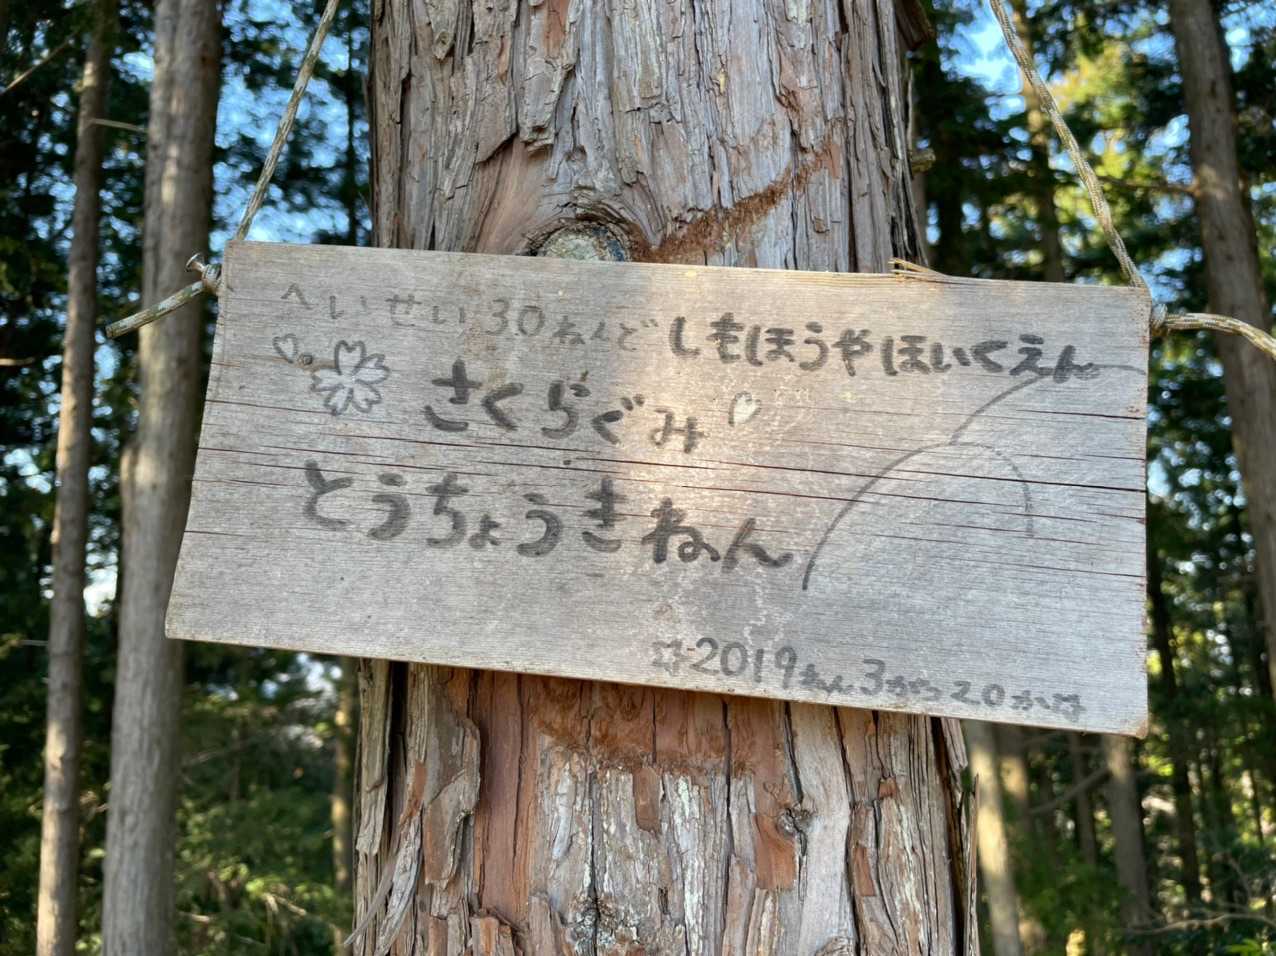 へいせい30ねんど しもほうやほいくえん
さくらぐみ
とうちょうきねん
2019ねん3がつ20か